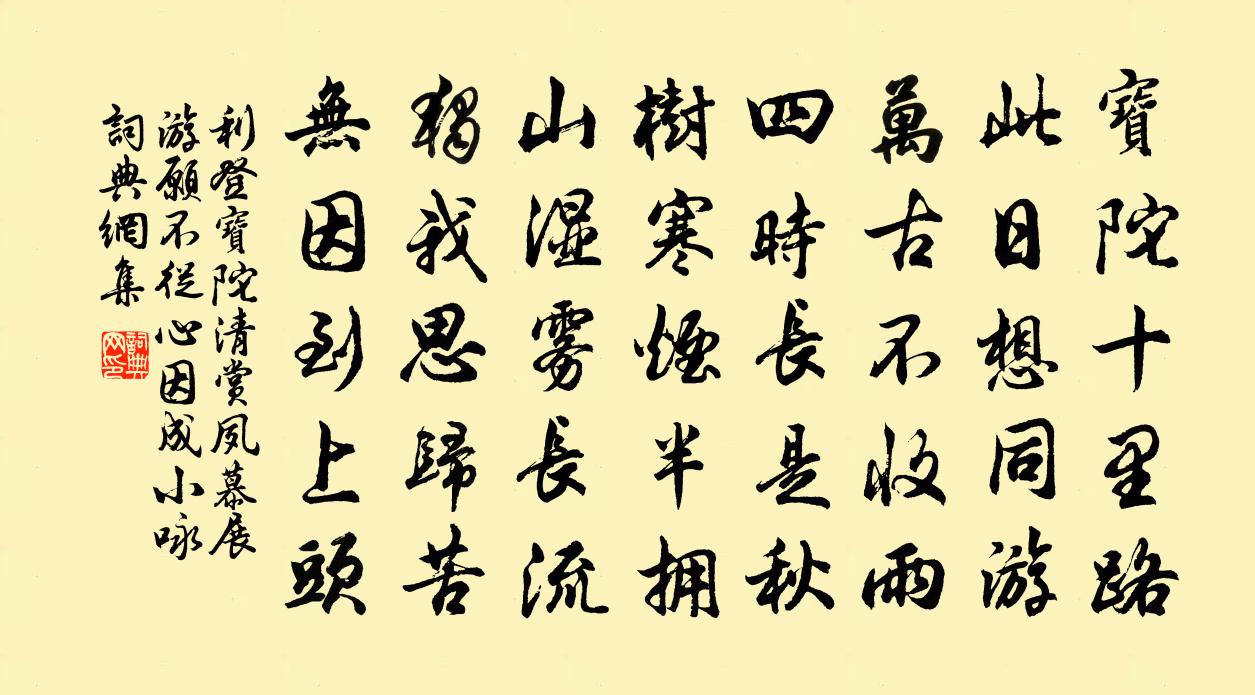 寶陀十里路
此日想同游
萬古不收雨
四時長是秋
樹寒煙半拥
山湿雾長流
獨我思歸苦
無因到上頭
利登寶陀清賞夙慕展
游願不從心因成小咏
詞典網集
詞典网印